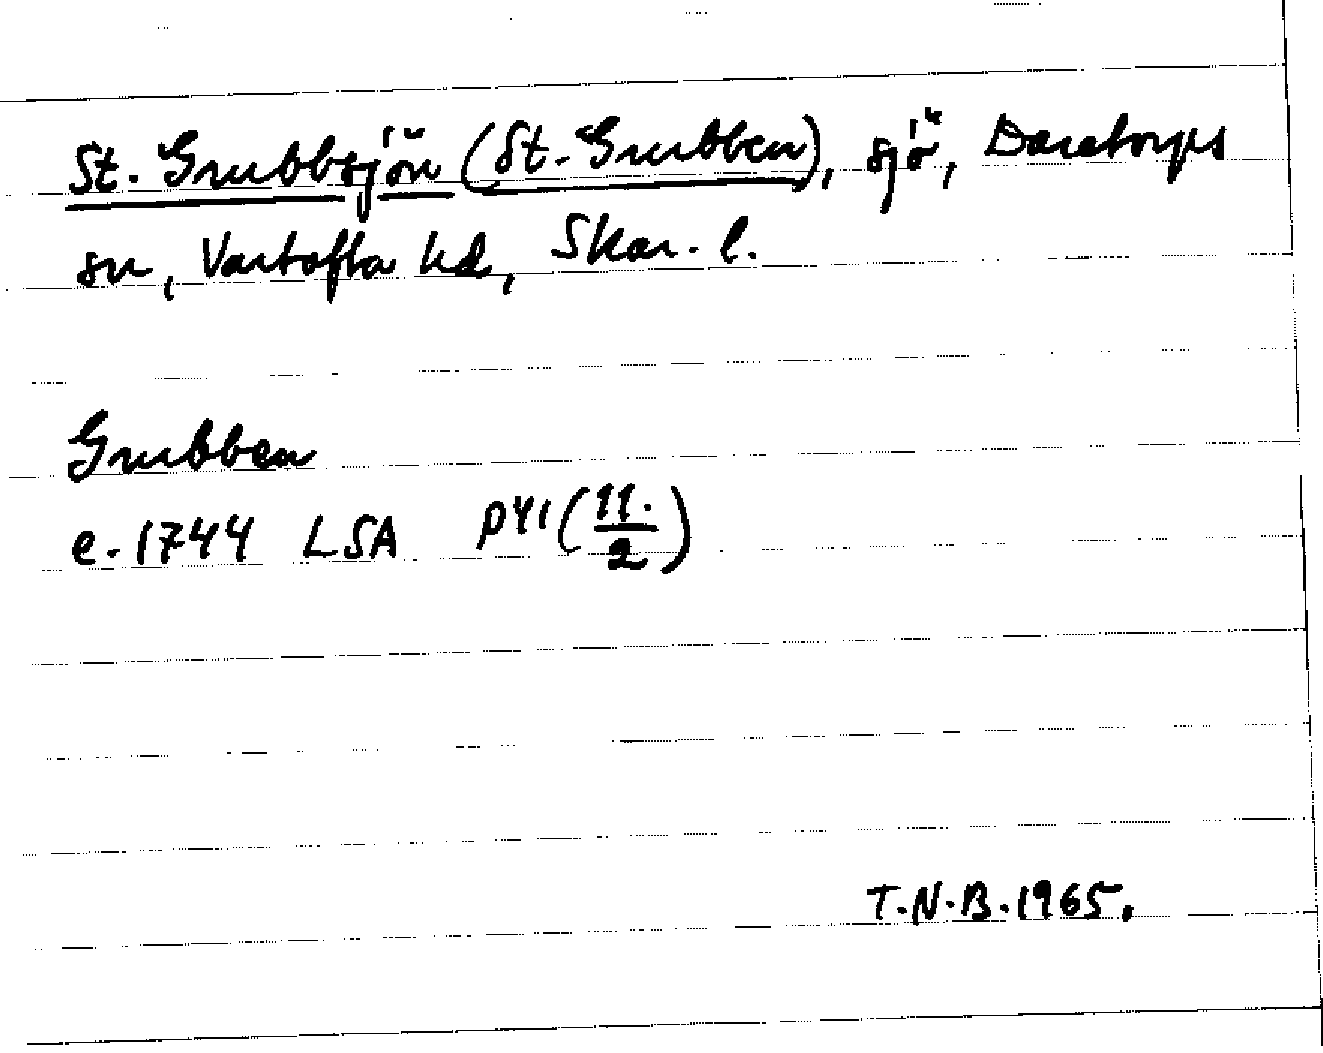 St. Grubbsjön (St. Grubben), sjö, Daretorps
sn, Vartofta hd, Skar. l.
Grubben
e. 1744 LSA P41 (11./2)
T.N.B. 1965.